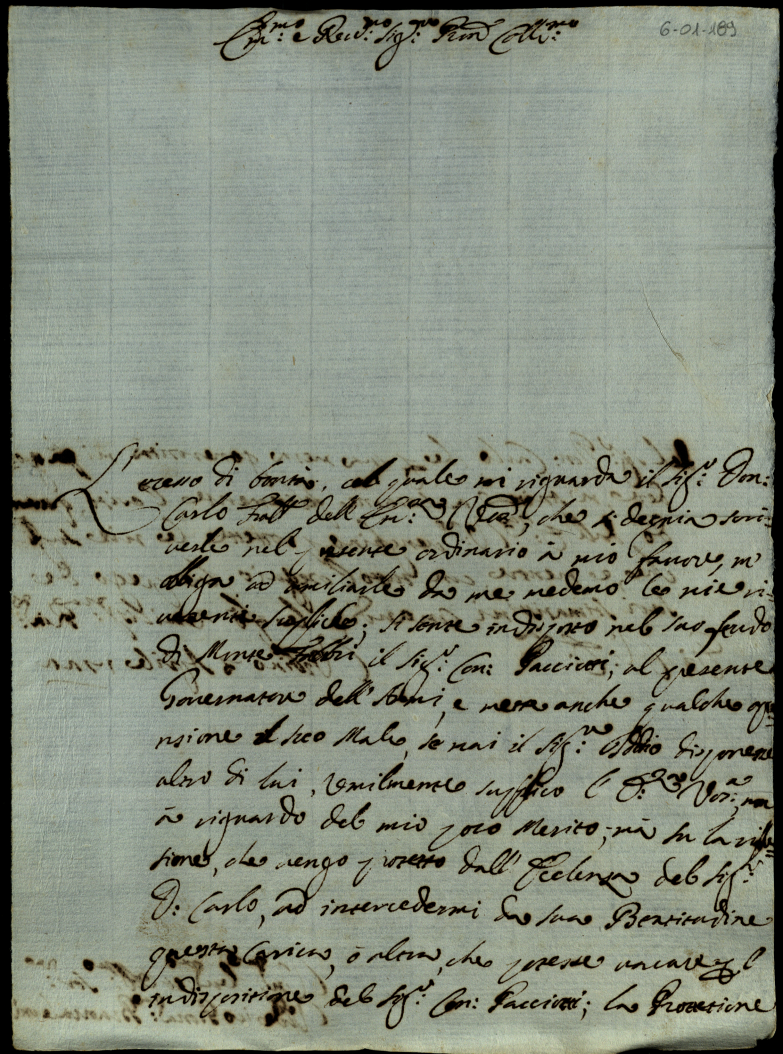 6-01-189
Em.mo e Rev.mo Sig.re Pron Coll.mo
L'eccesso di bontà, col quale mi riguarda il Sig.r Don:
Carlo Fratt dell'Em.za Vostra, che si degnia scri=
verle nel presente ordinario à mio favore, m'
obliga ad umiliarle da me medemo le mie ri=
verenti suppliche; si sente indisposto nel suo feudo
di Monte Fabri il Sig.r Con: Pacciotti, al presente
Governatore dell'Armi, e mette anche qualche
il suo Male, se mai il Sig.re Iddio disponesse
altro di lui, Umilmente supplico l'E.za Vos.a, non
à riguardo del mio poco Merito, mà su la
sione, che vengo protetto dall'Eccelenza del Sig.r
D: Carlo, ad intercedermi da sua Beatitudine
questa Carica, ò altra, che potesse vacare p l'
indisposizione del Sig.r Con: Pacciotti; la Protezione